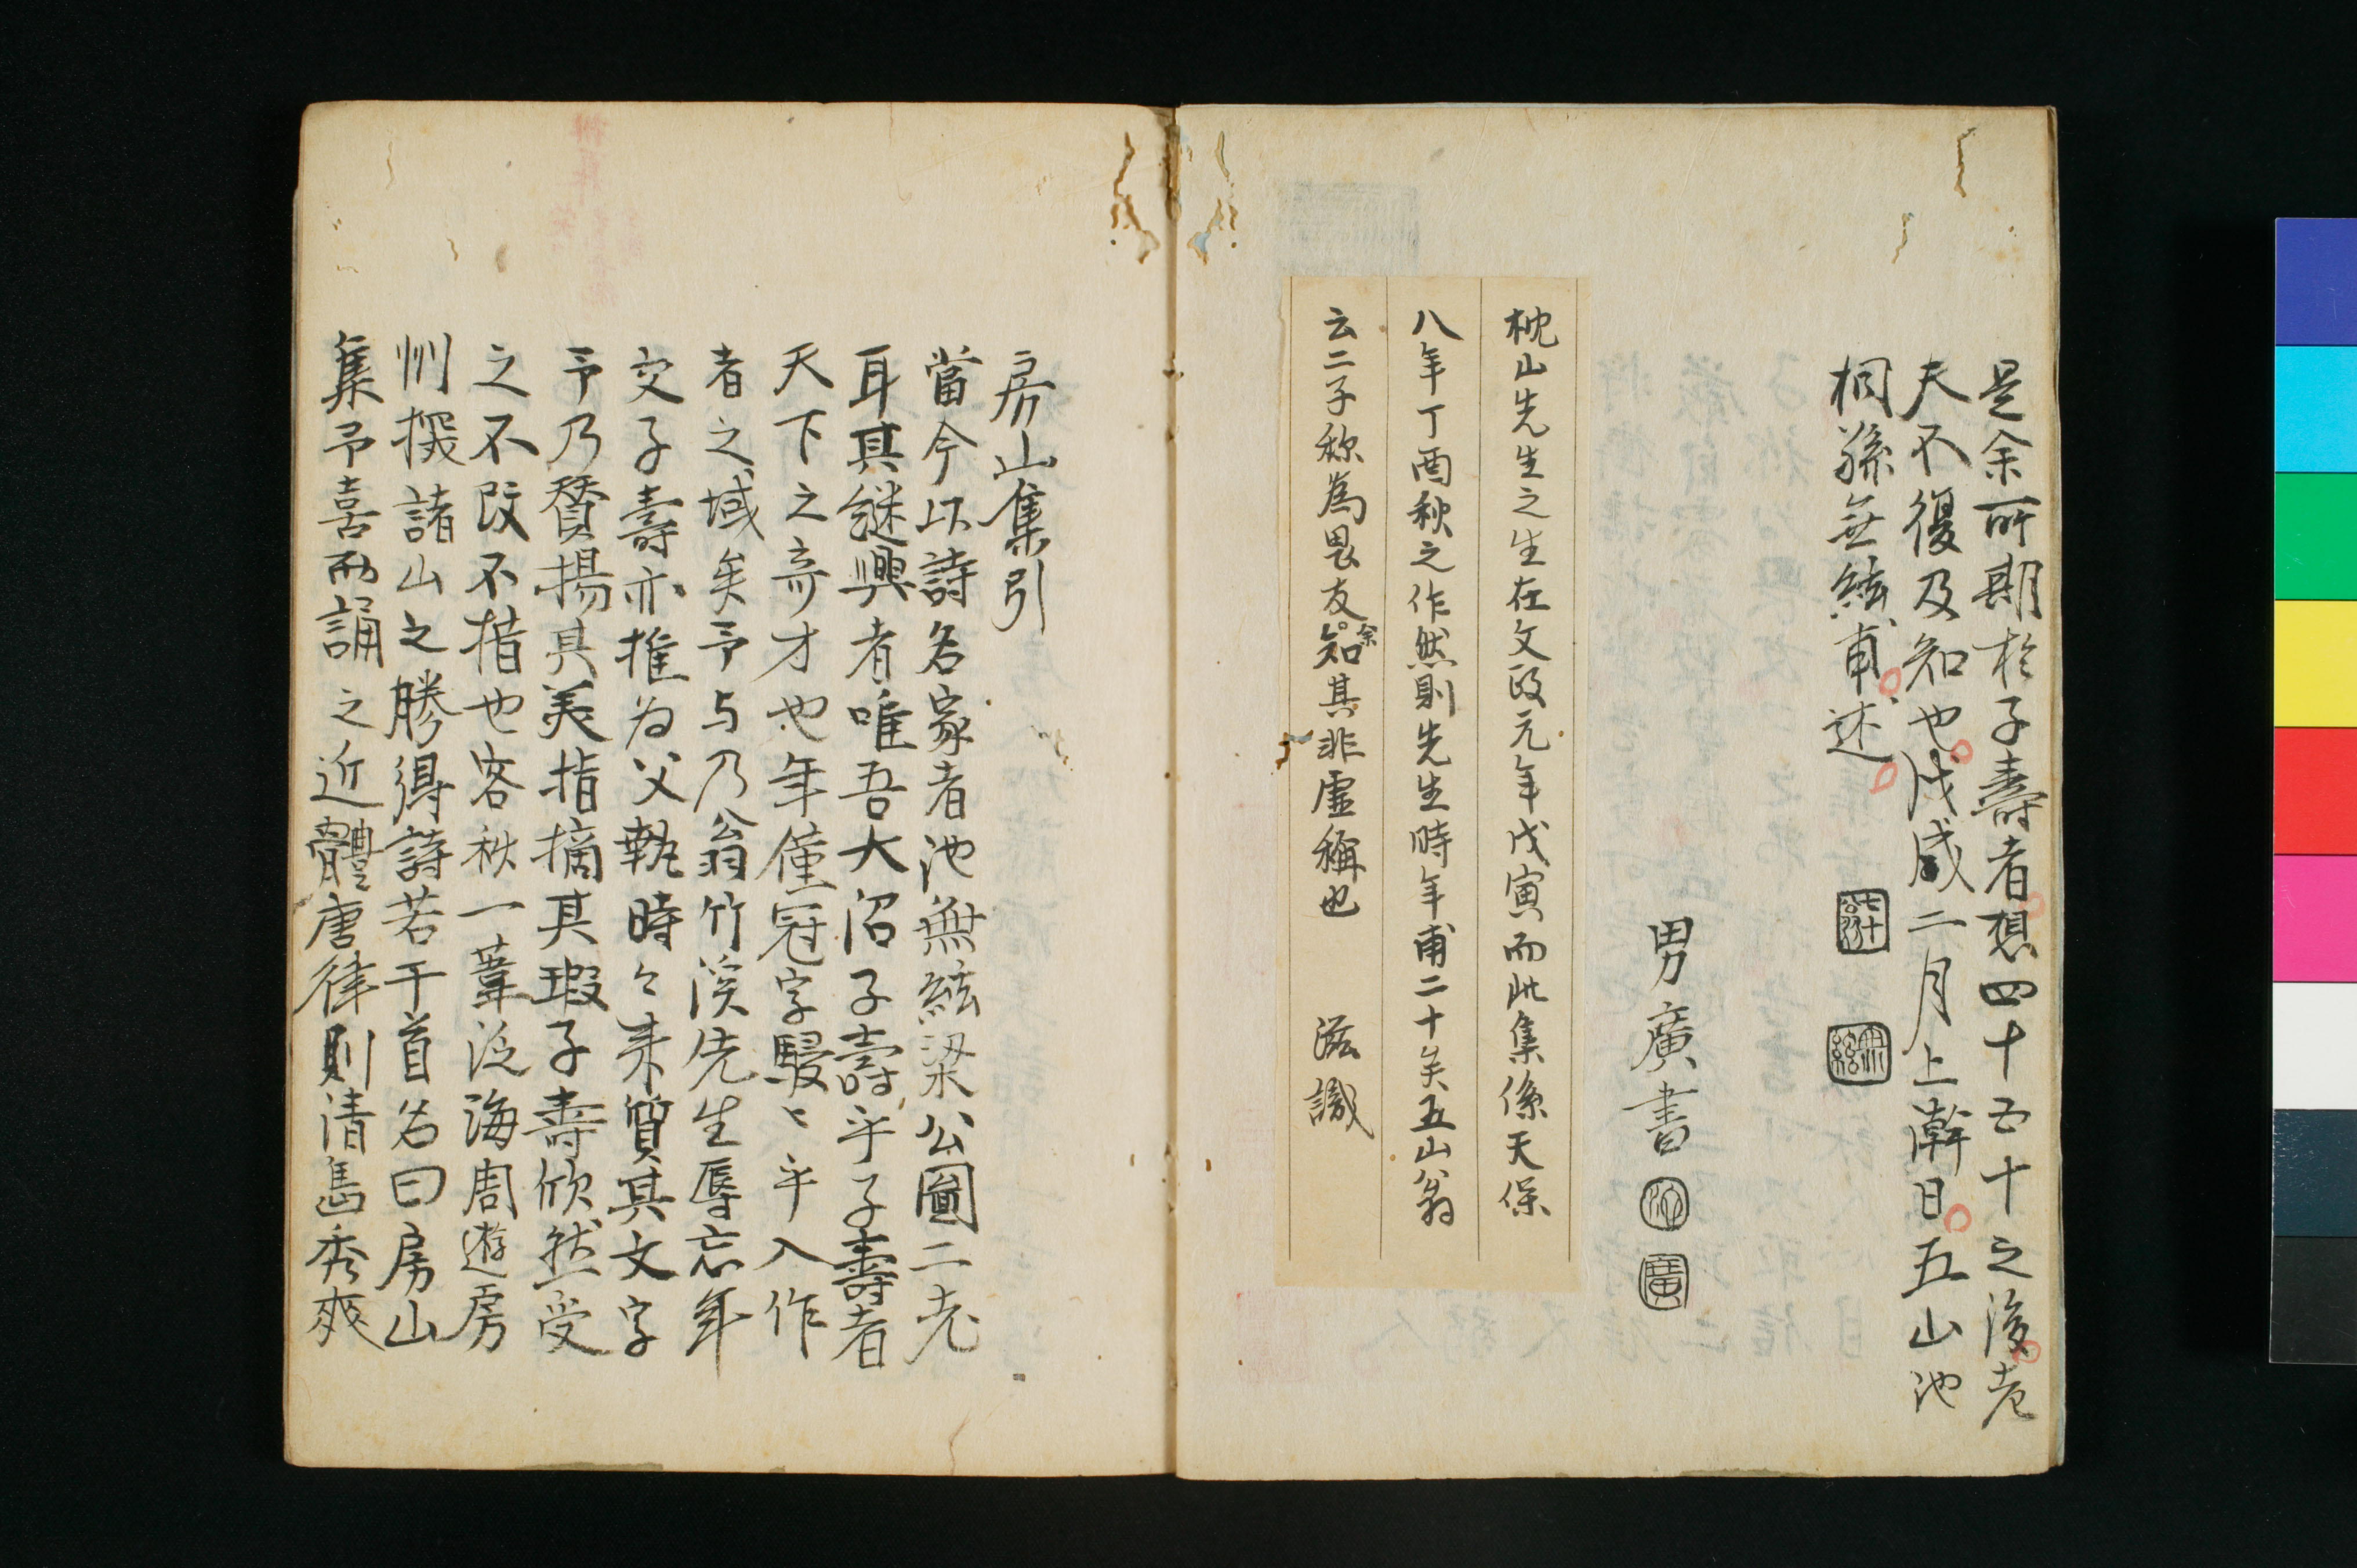 是余所期於子壽者想四十五十之後老
夫不復及知也戊戌二月上澣日五山池
桐孫無絃甫述
男廣書
枕山先生之生在文政元年戊寅而此集係天保
八年丁酉秋之作然則先生時年甫二十矣五山翁
云二子称為畏友余知其非虛稱也
滋識
房山集引
當今以詩名家者池無絃梁公圖二老
耳其継興者唯吾大沼子壽乎子壽者
天下之奇才也年僅冠字駸〻乎入作
者之域矣予与乃翁竹溪先生辱忘年
交子壽亦推为父執時〻来質其文字
予乃賛揚其美指摘其瑕子壽欣然受
之不改不措也客秋一葦泛海周遊房
州探諸山之勝得詩若干首名曰房山
集予喜而誦之近體唐律則清雋秀爽